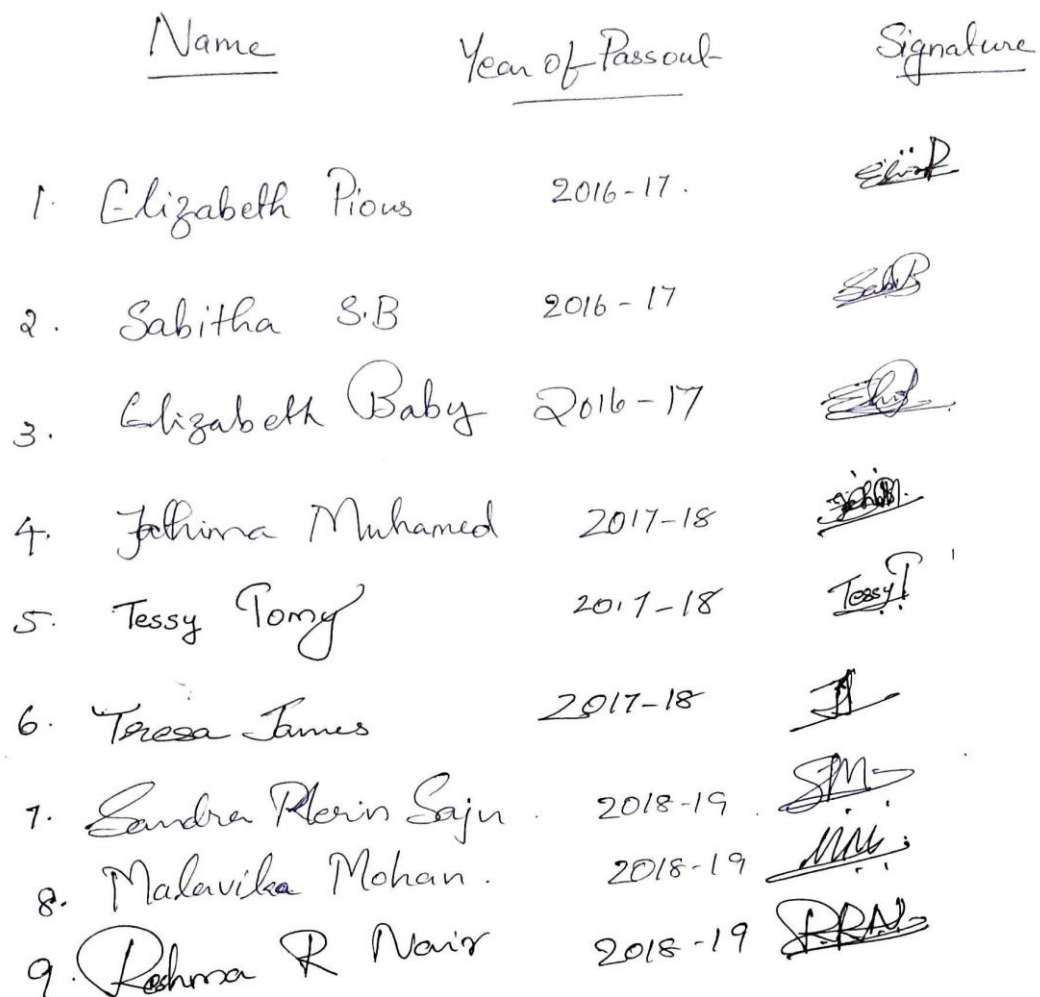 Name Year of Passout Signature
1. Elizabeth Pious 2016-17.
2. Sabitha S.B 2016-17 SabiB
3. Elizabeth Baby 2016-17
4. Fathima Muhamed 2017-18
5. Tessy Tomy 2017-18 Tessy T
6. Teresa James 2017-18
7. Sandra Saju. 2018-19
8. Malavika Mohan. 2018-19
9. Reshma R Nair 2018-19 RRN